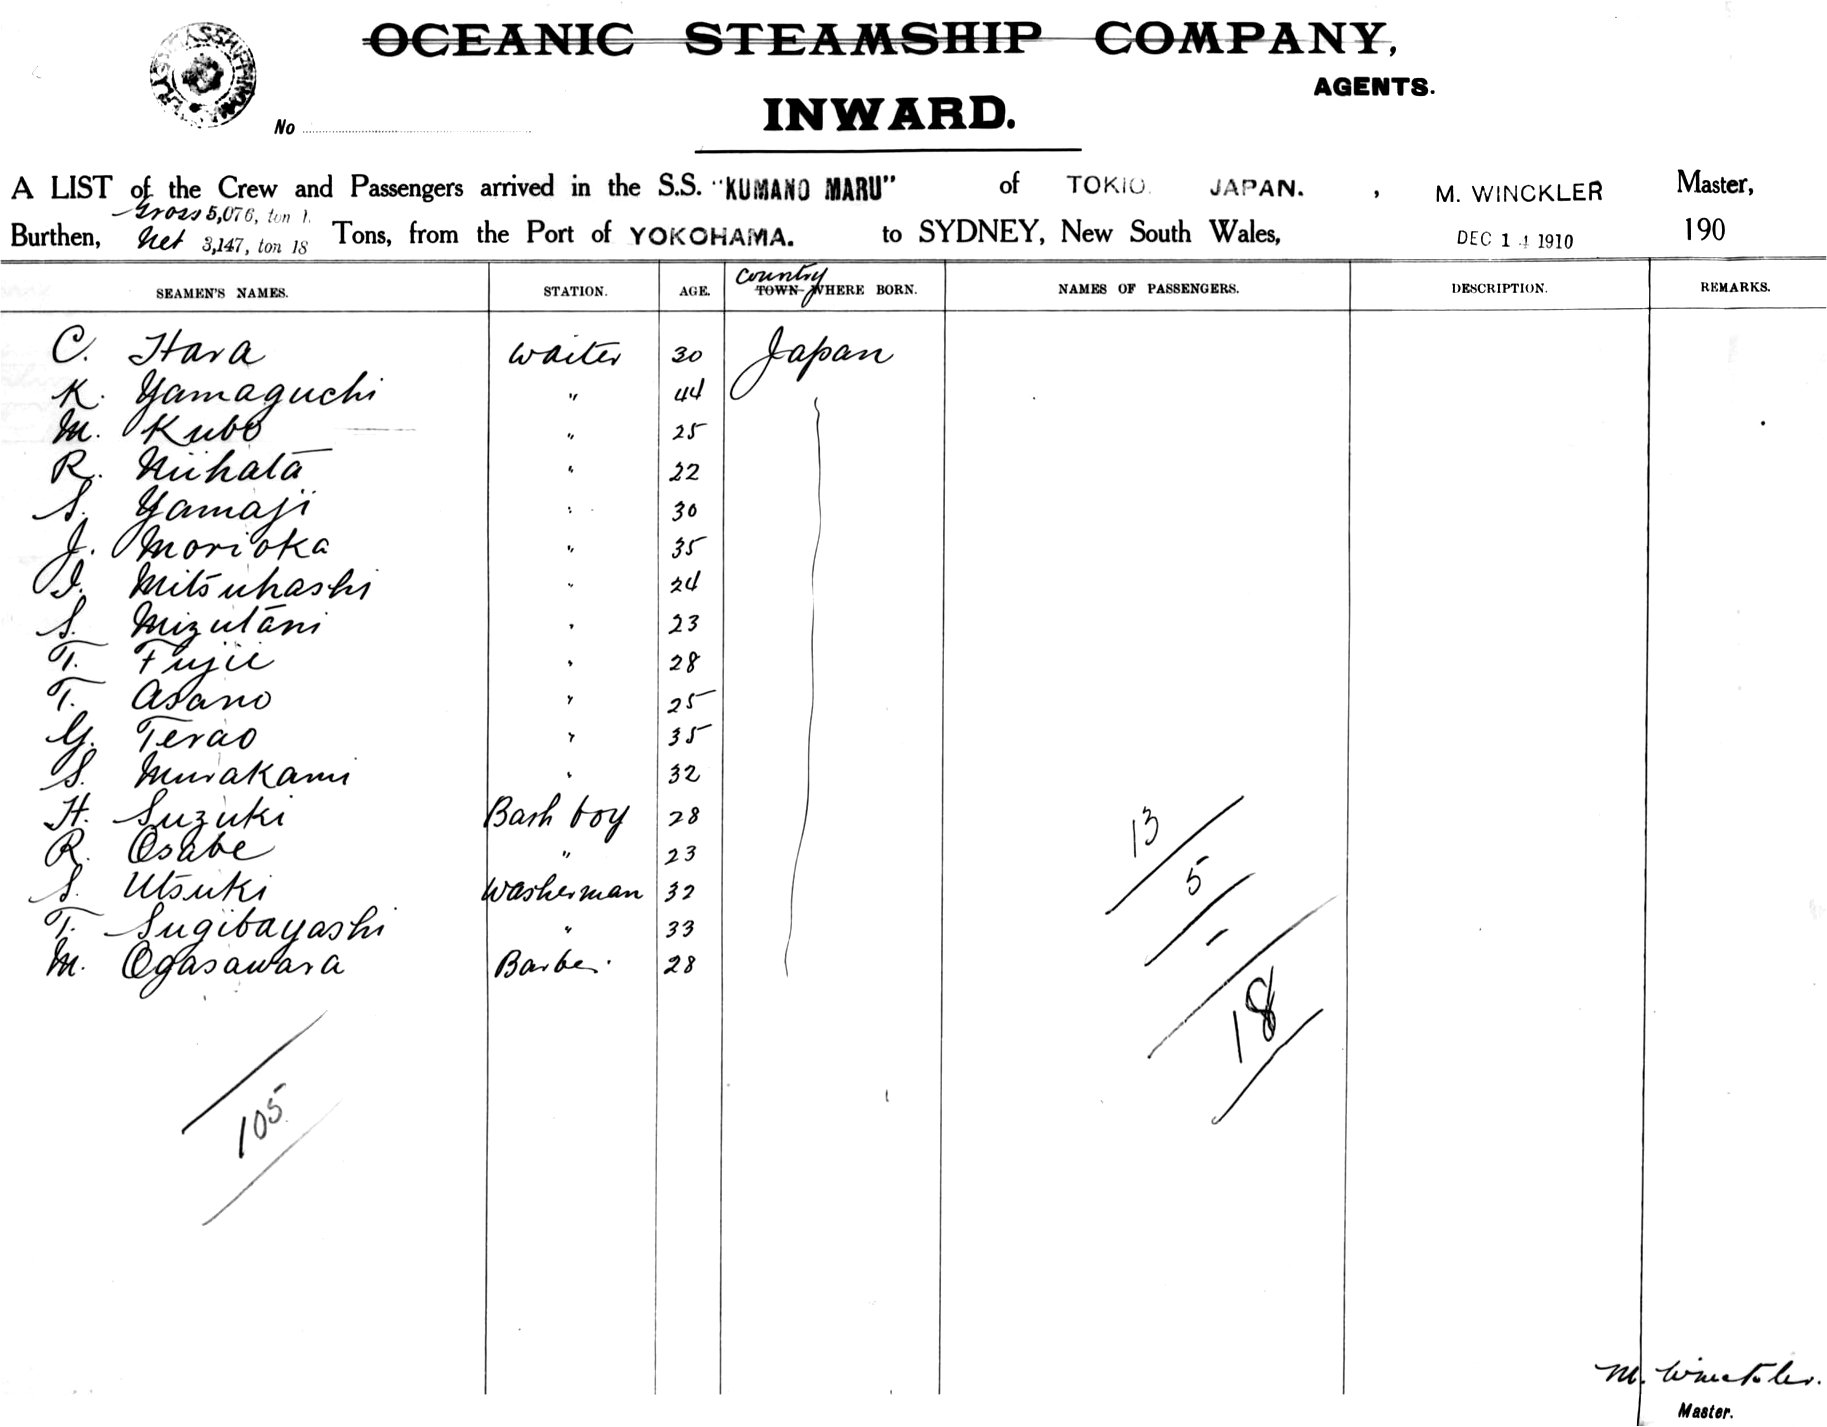 OCEANIC STEAMSHIP COMPANY,
AGENTS.
No
INWARD.
A LIST of the Crew and Passengers arrived in the S.S. "KUMANO MARU" of TOKIO. JAPAN. , M. WINCKLER Master,
Gross 5,076, ton
Burthen, Net 3,147, ton 18 Tons, from the Port of YOKOHAMA. to SYDNEY, New South Wales, DEC 14 1910 190
Country
SEAMEN'S NAMES. STATION. AGE. TOWN WHERE BORN. NAMES OF PASSENGERS. DESCRIPTION. REMARKS.
C. Hara Waiter 30 Japan
K. Yamaguchi " 44
M. Kubo " 25
R. Niihata " 22
S. Yamaji " 30
J. Morioka " 35
I. Mitsuhashi " 24
S. Mizutani " 23
T. Fujii " 28
T. Asano " 25
G. Terao " 35
S. Murakami " 32
H. Suzuki Bash boy 28
R. Osabe " 23
S. Utsuki Washerman 32
T. Sugibayashi " 33
M. Ogasawara Barber 28
13
5
-
18
105
M. Winckler.
Master.